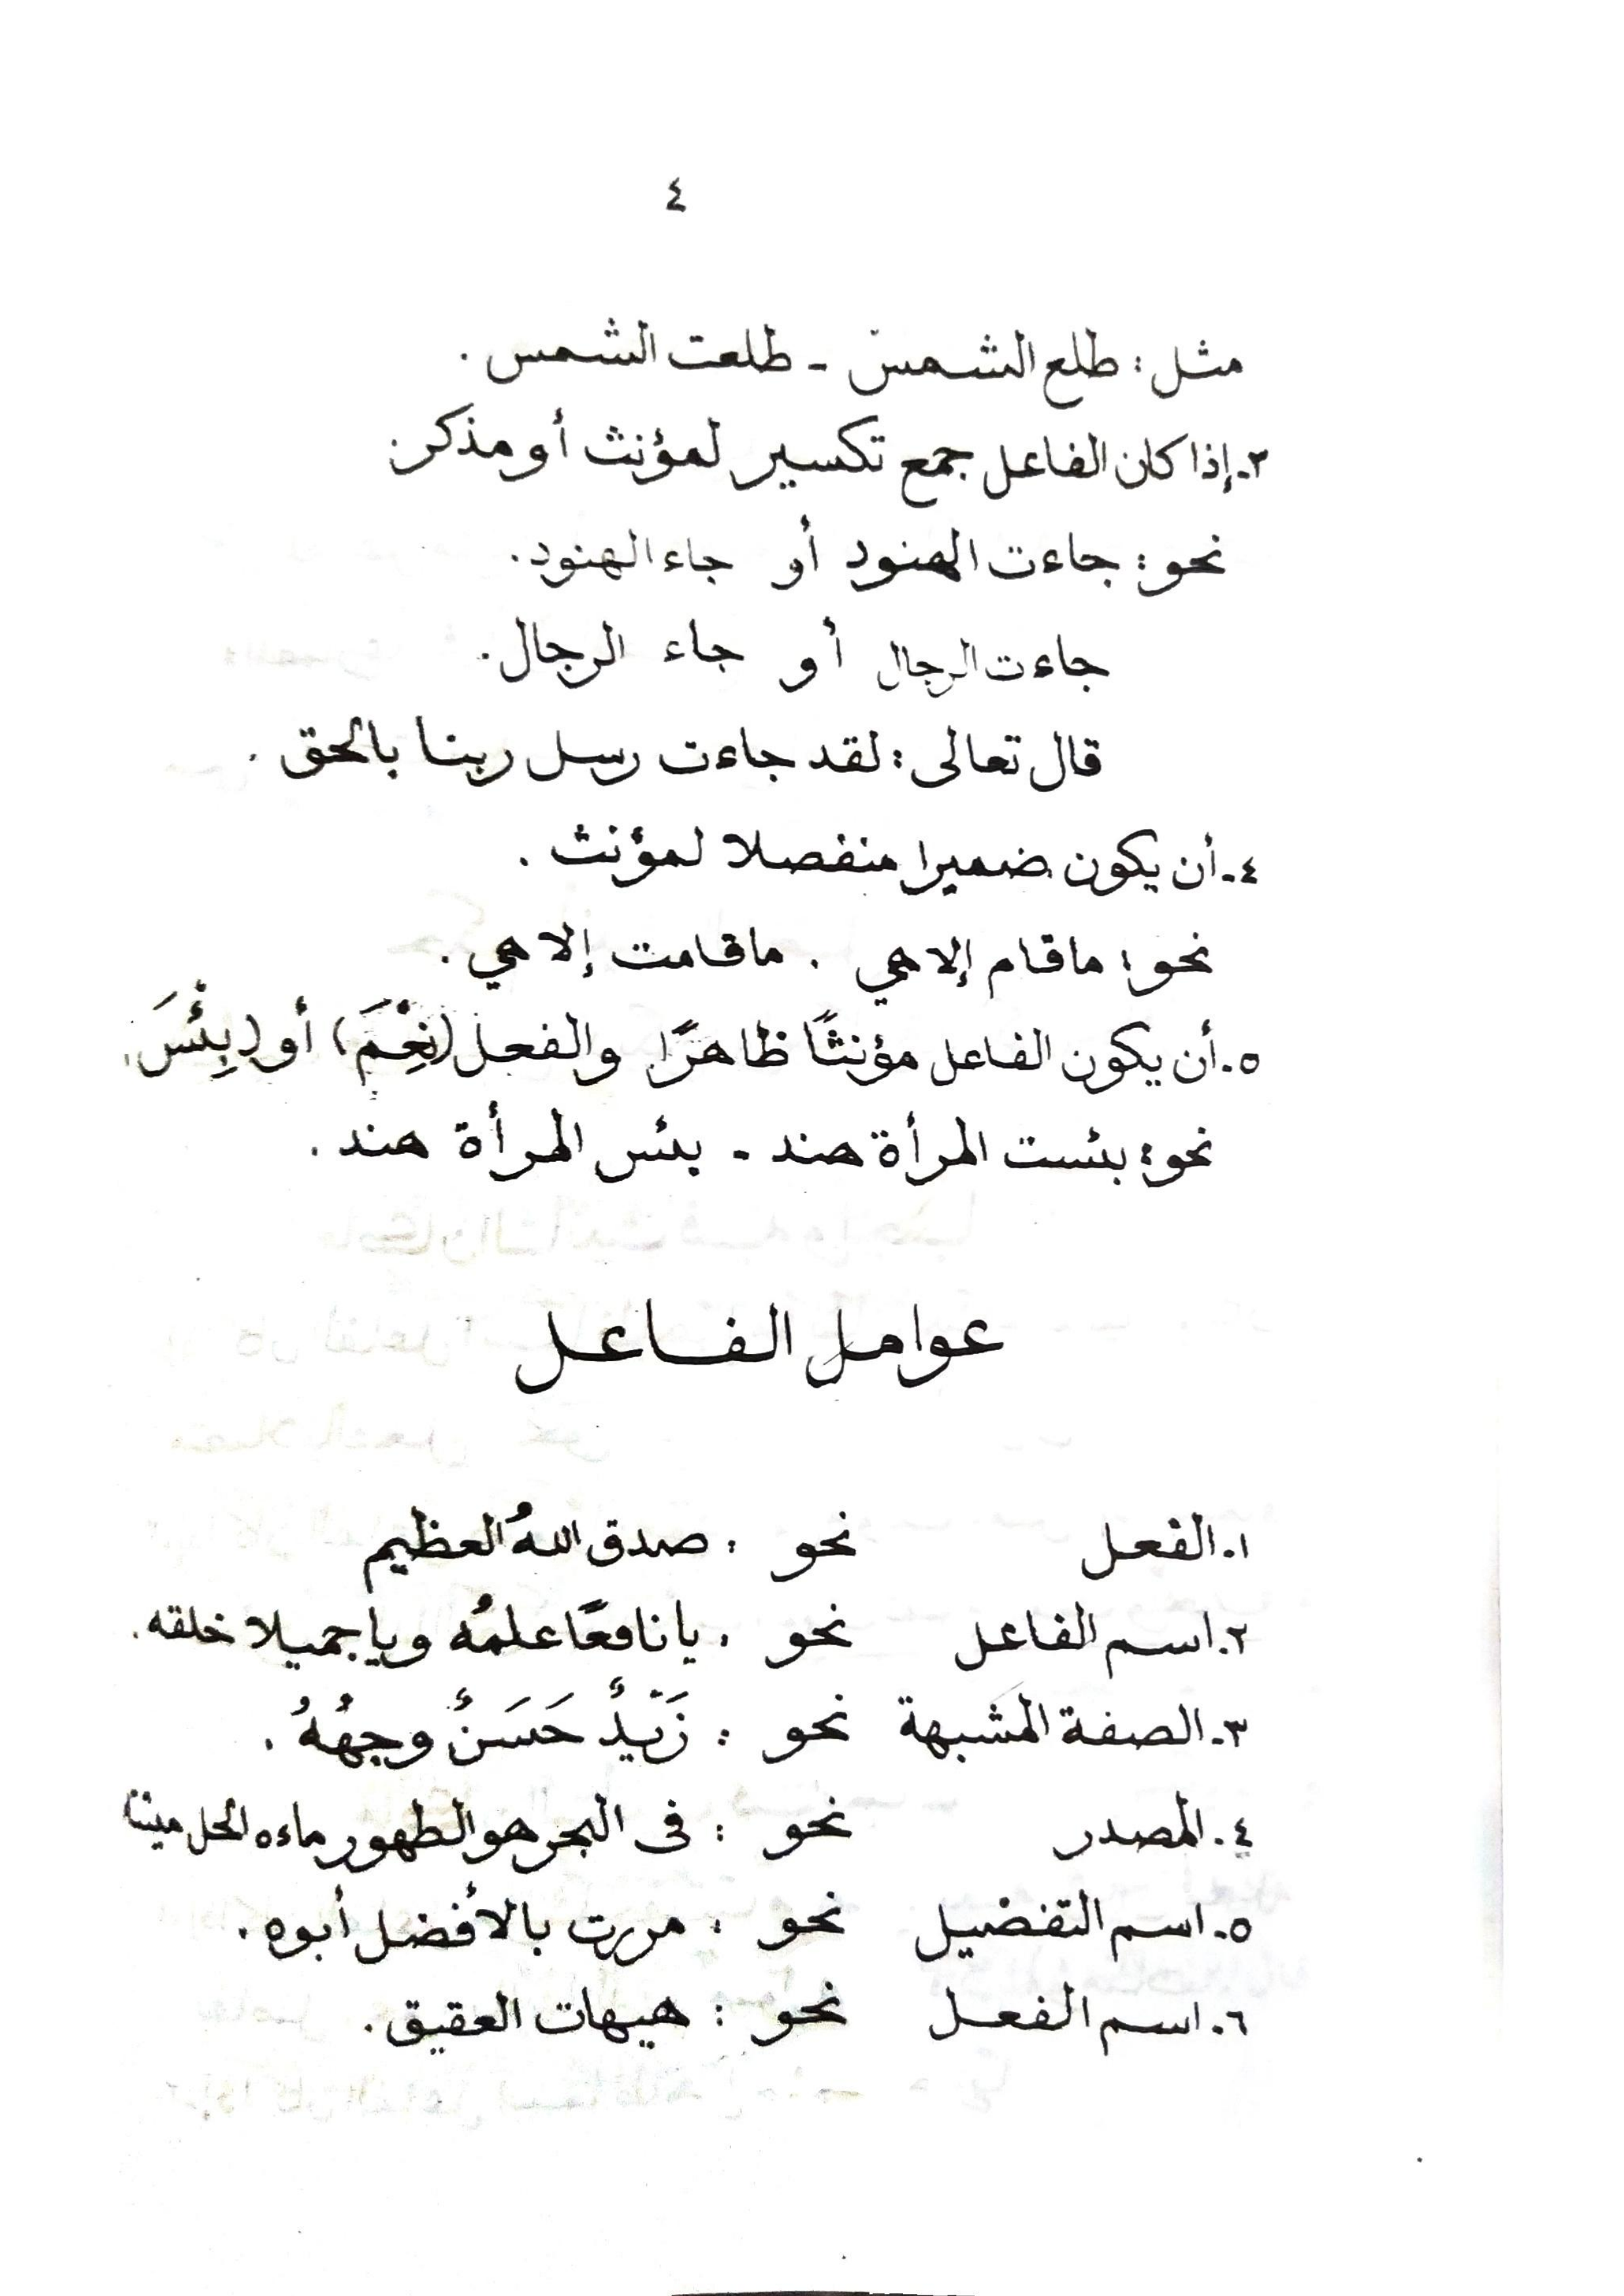 ٤
مثل : طلع الشمس - طلعت الشمس .
٣- إذا كان الفاعل جمع تكسير لمؤنث أو مذكر .
نحو : جاءت الهنود أو جاء الهنود .
جاءت الرجال أو جاء الرجال .
قال تعالى : لقد جاءت رسل ربنا بالحق .
٤- أن يكون ضميرا منفصلا لمؤنث .
نحو : ماقام إلا هي . ماقامت إلا هي .
٥- أن يكون الفاعل مؤنثًا ظاهرًا والفعل (نِعْمَ) أو (بِئْسَ
نحو : بئست المرأة هند - بئس المرأة هند .
عوامل الفاعل
١- الفعل نحو : صدق اللهُ العظيم
٢- اسم الفاعل نحو : يا نافعًا علمُه ويا جميلا خلقه .
٣- الصفة المشبهة نحو : زَيْدٌ حَسَنٌ وجهُهُ .
٤- المصدر نحو : فى البحر هو الطهور ماءه الحل ميتتا
٥- اسم التفضيل نحو : مررت بالأفضل أبوه .
٦- اسم الفعل نحو : هيهات العقيق .